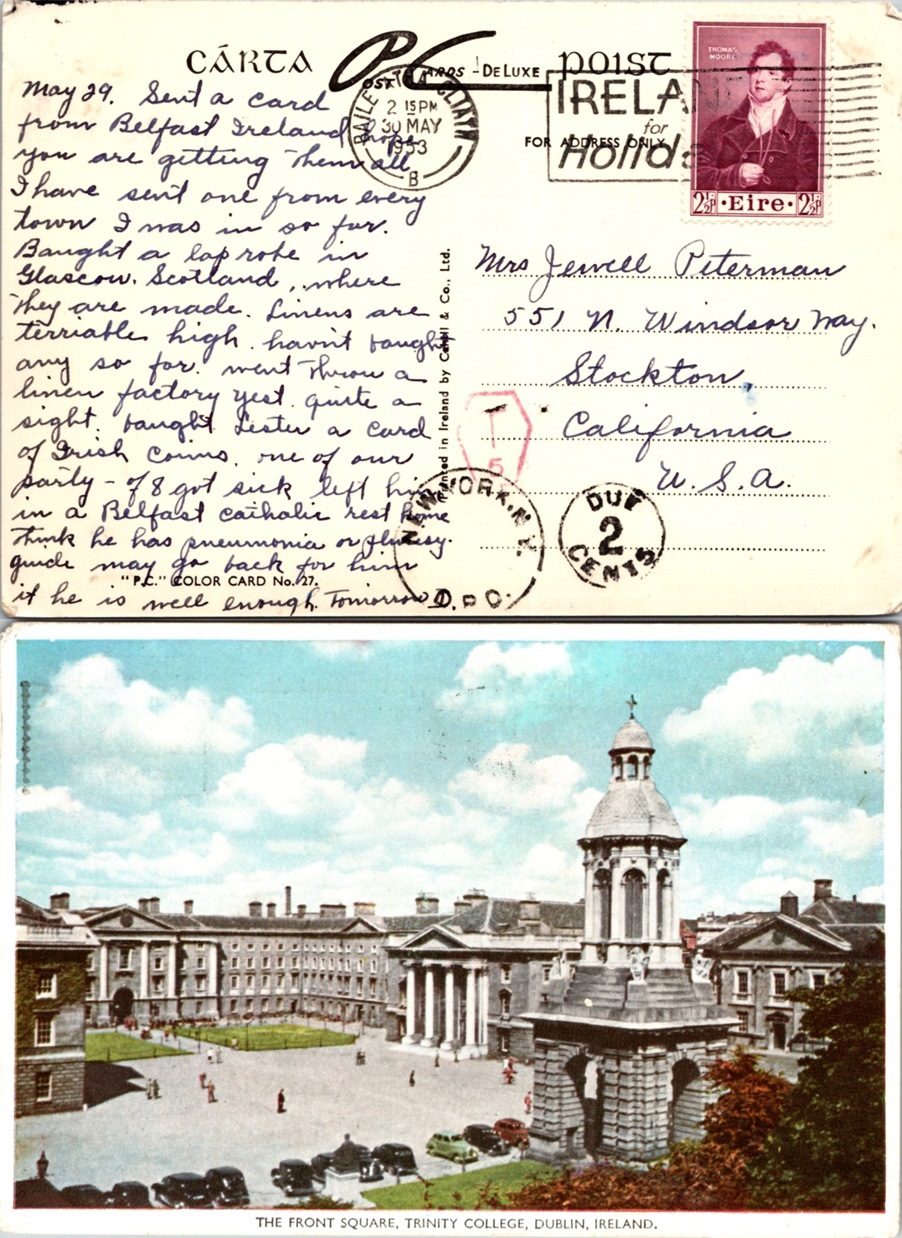 CÁRTA
PC
POST CARDS - DE LUXE
POIST
FOR ADDRESS ONLY
THOMAS MOORE
2½p · Eire · 2½p
BAILE ÁTHA CLIATH
2 15 PM
30 MAY
1953
B
IRELA
for
Holida
May 29. Sent a card
from Belfast Ireland hope
you are getting them all
I have sent one from every
town I was in so far.
Baught a lap robe in
Glascow. Scotland, where
they are made. Linens are
terriable high. havn't baught
any so far. went throw a
linen factory yest. quite a
sight. baught Lester a card
of Irish coins. one of our
party - of 8 got sick left him
in a Belfast catholic rest home
think he has pneumonia or flurisy.
guide may go back for him
if he is well enough. Tomorrow
Mrs Jewell Peterman
551 N. Windsor Way.
Stockton,
California
U.S.A.
Printed in Ireland by Cahill & Co., Ltd.
T
5
NEW YORK, N.Y.
D.P.O.
DUE
2
CENTS
"P.C." COLOR CARD No. 27.
THE FRONT SQUARE, TRINITY COLLEGE, DUBLIN, IRELAND.